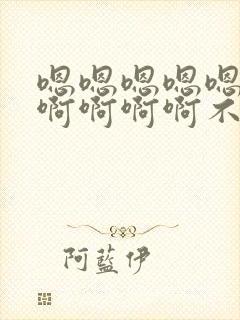 嗯嗯嗯嗯嗯
啊啊啊啊不
阿藍伊